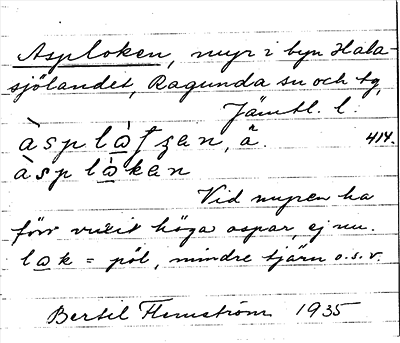 Asploken, myr i byn Hala-
sjölandet, Ragunda sn och tg,
Jämtl. l.
àsplo̲ʃʒan, ä. 414.
àsplò̲kan
Vid myren ha
förr vuxit höga aspar, ej nu.
lo̲k = pöl, mindre tjärn o.s.v.
Bertil Flemström 1935